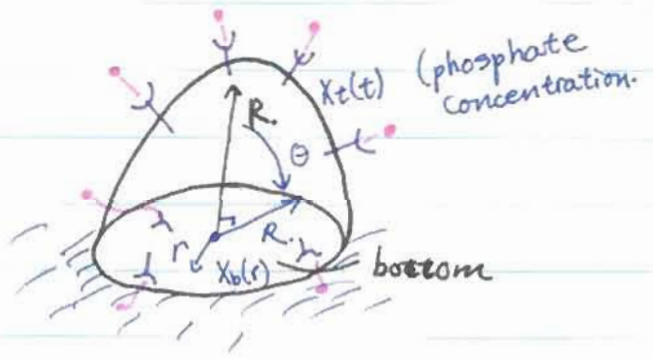 (phosphate
Xt(t)
concentration.
R.
θ
R.
r
Xb(r)
bottom